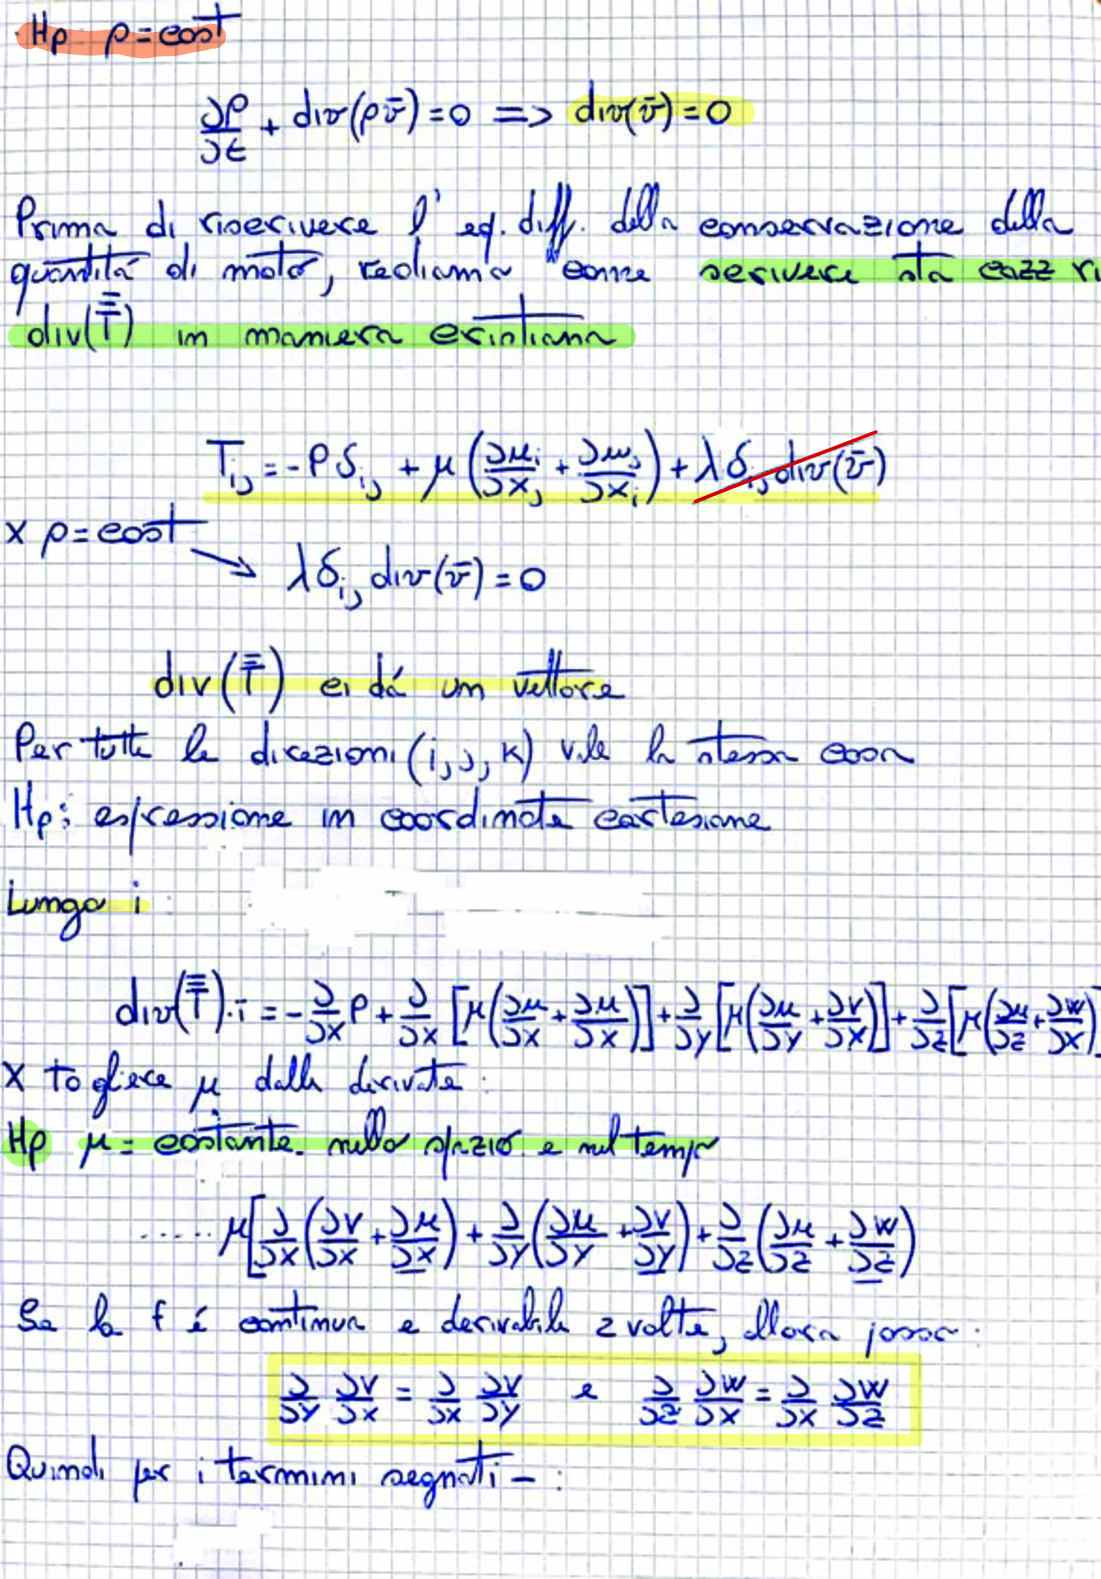 Hp ρ=cost
∂ρ/∂t + div(ρv̄)=0 => div(v̄)=0
Prima di riscrivere l'eq. diff. della conservazione della
quantitá di moto, vediamo come scrivere sta cazz ri
div(T̿) in maniera cristiana
Tij = -Pδij + μ(∂ui/∂xj + ∂uj/∂xi) + λδij div(v̄)
x ρ=cost
λδij div(v̄)=0
div(T̿) ci dá un vettore
Per tutte le direzioni (i,j,k) vale la stessa cosa
Hp: espressione in coordinate cartesiane
Lungo i
div(T̿)·i = -∂/∂x P + ∂/∂x [μ(∂u/∂x + ∂u/∂x)] + ∂/∂y [μ(∂u/∂y + ∂v/∂x)] + ∂/∂z [μ(∂u/∂z + ∂w/∂x)]
x togliere μ dalle derivate:
Hp μ= costante nello spazio e nel tempo
..... μ[∂/∂x (∂v/∂x + ∂u/∂x) + ∂/∂y (∂u/∂y + ∂v/∂y) + ∂/∂z (∂u/∂z + ∂w/∂z)
Se la f é continua e derivabile 2 volte, allora posso:
∂/∂y ∂v/∂x = ∂/∂x ∂v/∂y e ∂/∂z ∂w/∂x = ∂/∂x ∂w/∂z
Quindi per i termini segnati - :